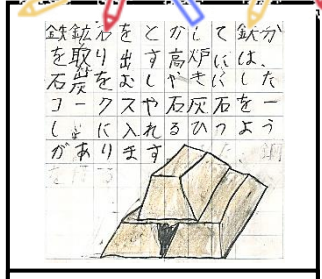 鉄鉱石をとかして鉄分
を取り出す高炉には、
石炭をむしやきにした
コークスや石灰石を一
しょに入れるひつよう
があります